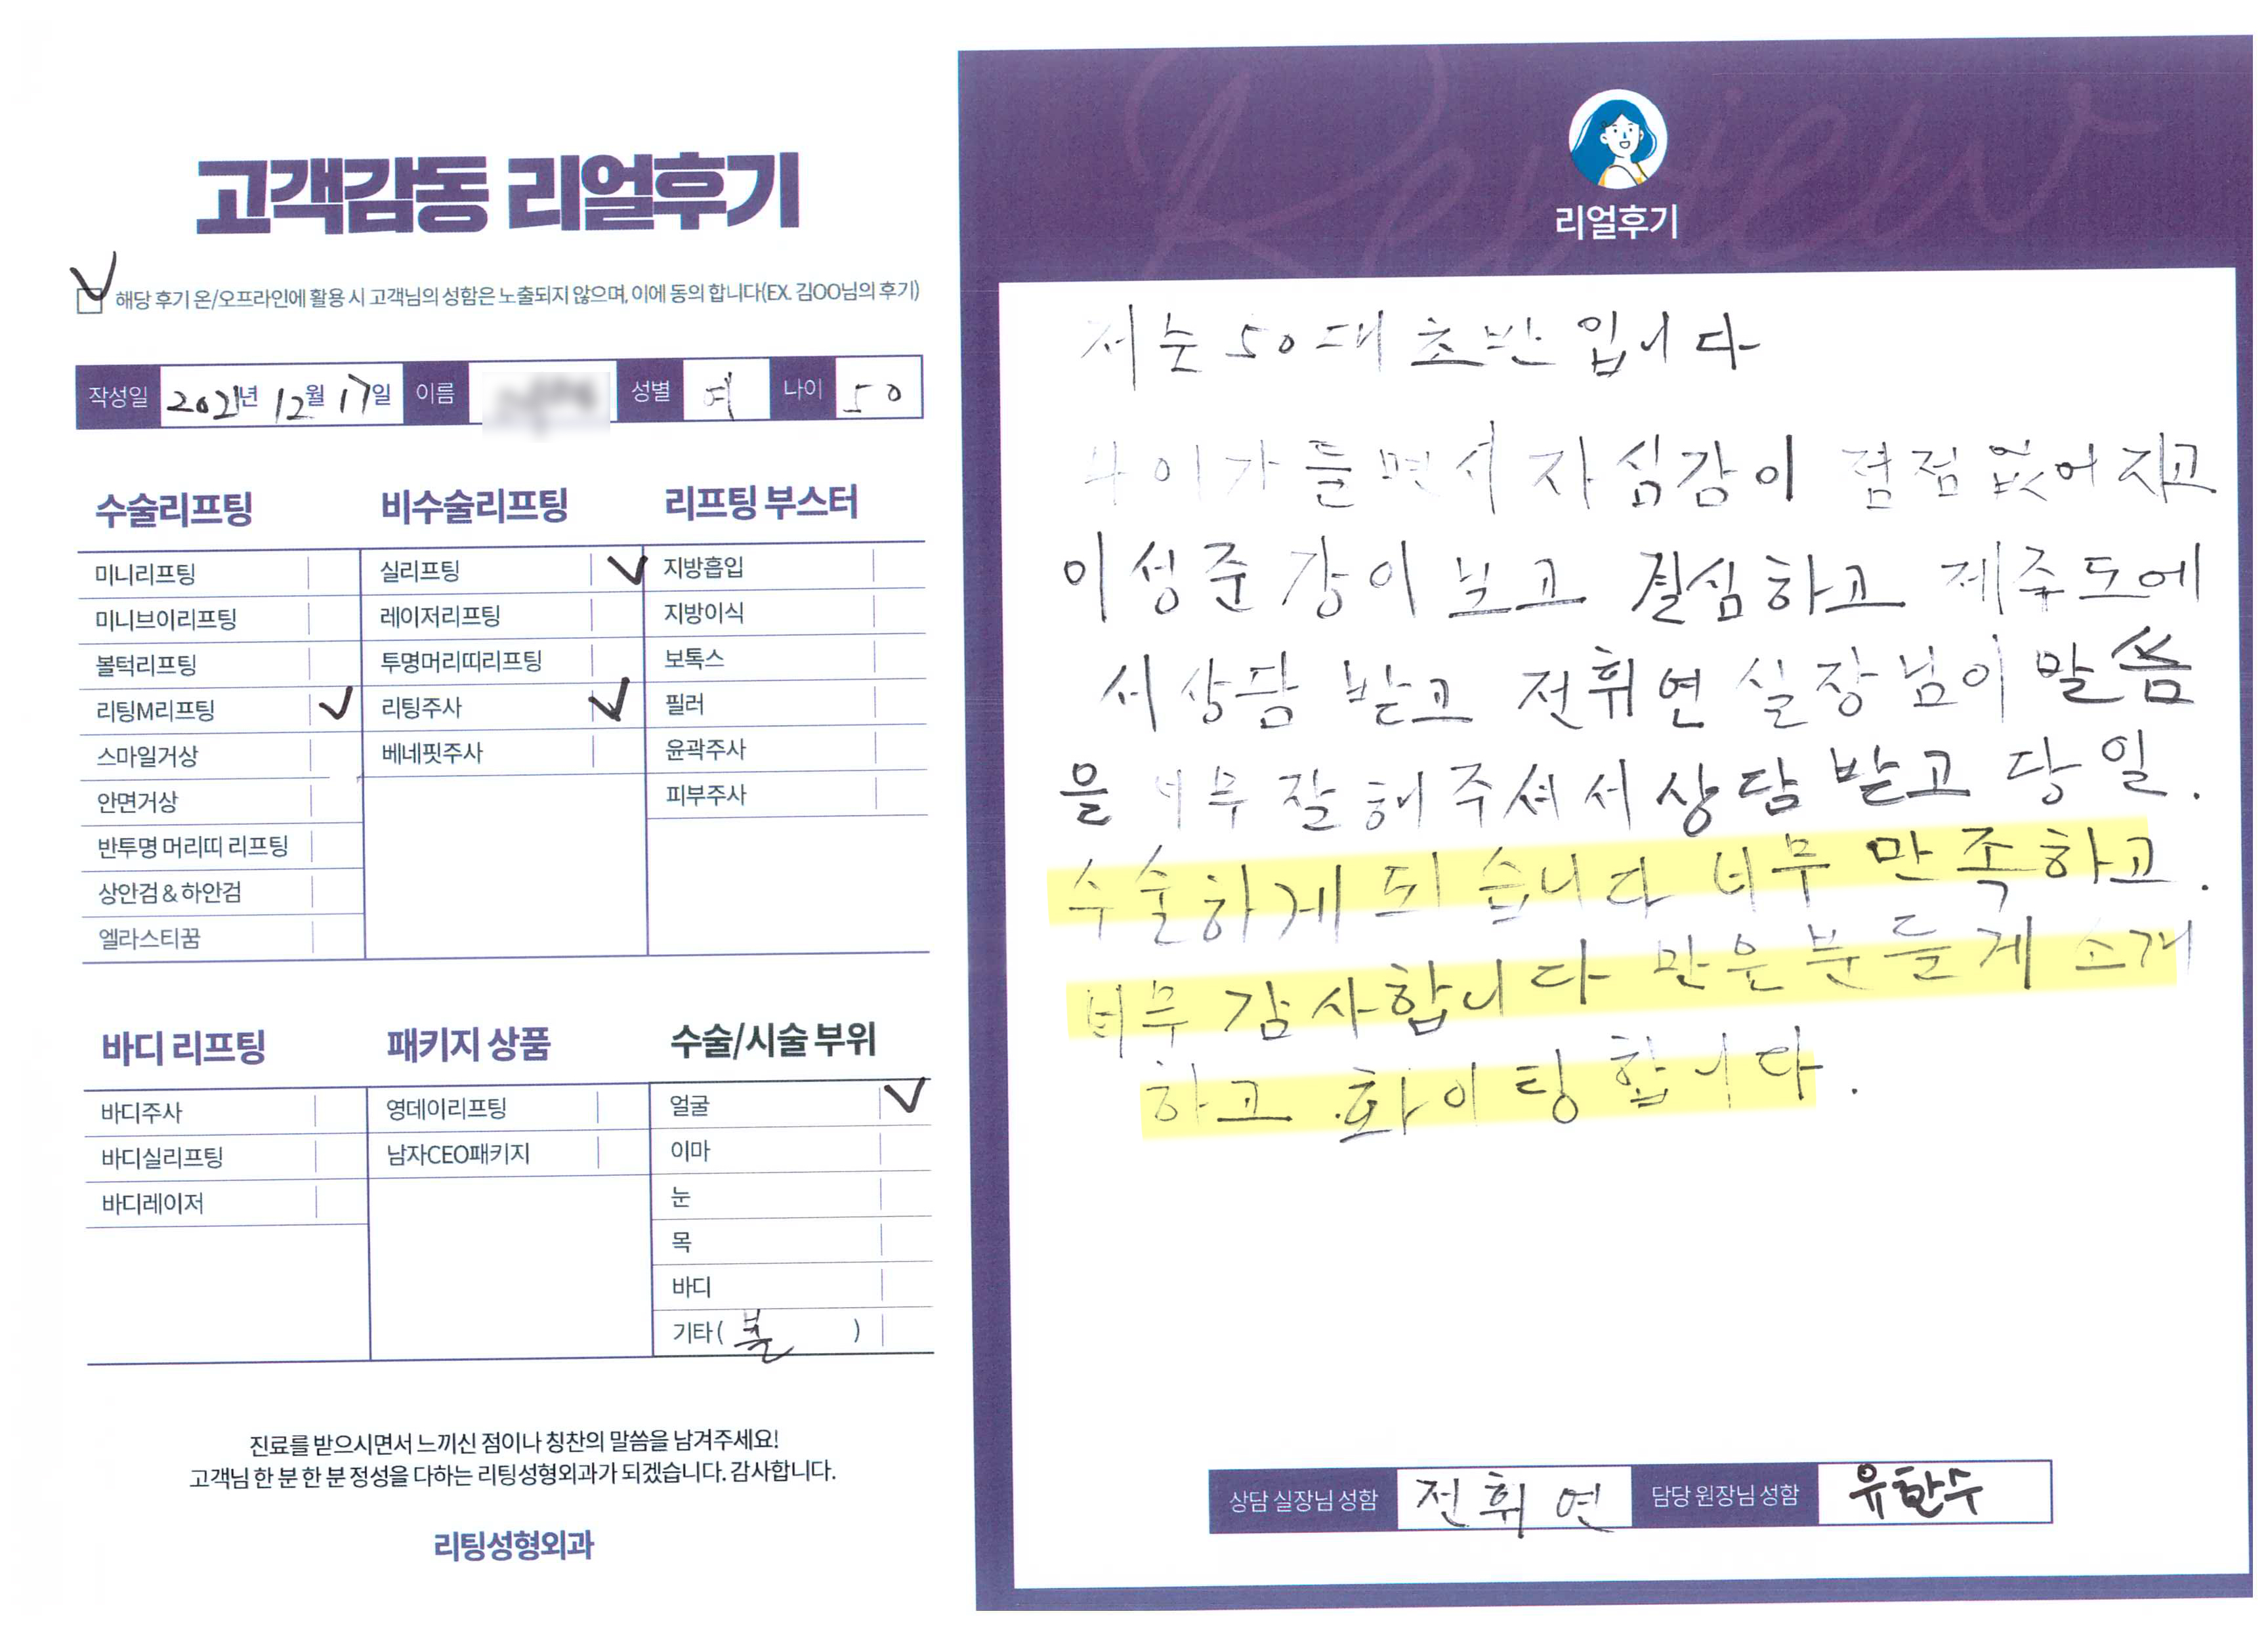 고객감동 리얼후기
해당 후기 온/오프라인에 활용 시 고객님의 성함은 노출되지 않으며, 이에 동의 합니다(EX. 김OO님의 후기)
작성일 2021년 12월 17일 이름 성별 여 나이 50
수술리프팅
미니리프팅
미니브이리프팅
볼턱리프팅
리팅M리프팅
스마일거상
안면거상
반투명 머리띠 리프팅
상안검 & 하안검
엘라스티꿈
비수술리프팅
실리프팅
레이저리프팅
투명머리띠리프팅
리팅주사
베네핏주사
리프팅 부스터
지방흡입
지방이식
보톡스
필러
윤곽주사
피부주사
바디 리프팅
바디주사
바디실리프팅
바디레이저
패키지 상품
영데이리프팅
남자CEO패키지
수술/시술 부위
얼굴
이마
눈
목
바디
기타( 볼 )
진료를 받으시면서 느끼신 점이나 칭찬의 말씀을 남겨주세요!
고객님 한 분 한 분 정성을 다하는 리팅성형외과가 되겠습니다. 감사합니다.
리팅성형외과
Review
리얼후기
저는 50대 초반 입니다
나이가 들면서 자심감이 점점 없어 지고
이성준 강이 보고 결심하고 제주도에
서 상담 받고 전휘연 실장님이 말씀
을 너무 잘 해주셔서 상담 받고 당일.
수술하게 되습니다 너무 만족하고.
너무 감사합니다 만은 분들게 소개
하고 화이팅 합니다.
상담 실장님 성함 전휘연 담당 원장님 성함 유한수